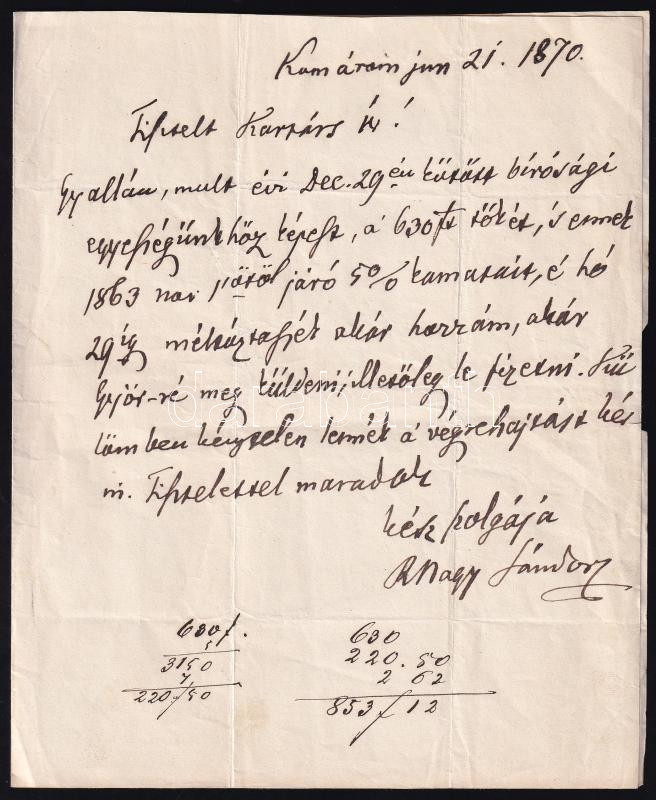 Komárom jun 21. 1870.
Tisztelt Kartárs Úr!
Gyallán, mult évi Dec. 29én kötött bírósági
egyességünkhöz képest, a 630 ft tőkét, s ennek
1863 től járó 5% kamatait, é hó
29ig méltóztassék akár hozzám, akár
Győr-ré meg küldeni, illetőleg le fizetni.
kénytelen lennék a végrehajtást kér-
ni. Tisztelettel maradok
kész szolgája
RNagy Sándor
630f.
5
3150
7
220f50
630
220.50
2 62
853f12
darabanth